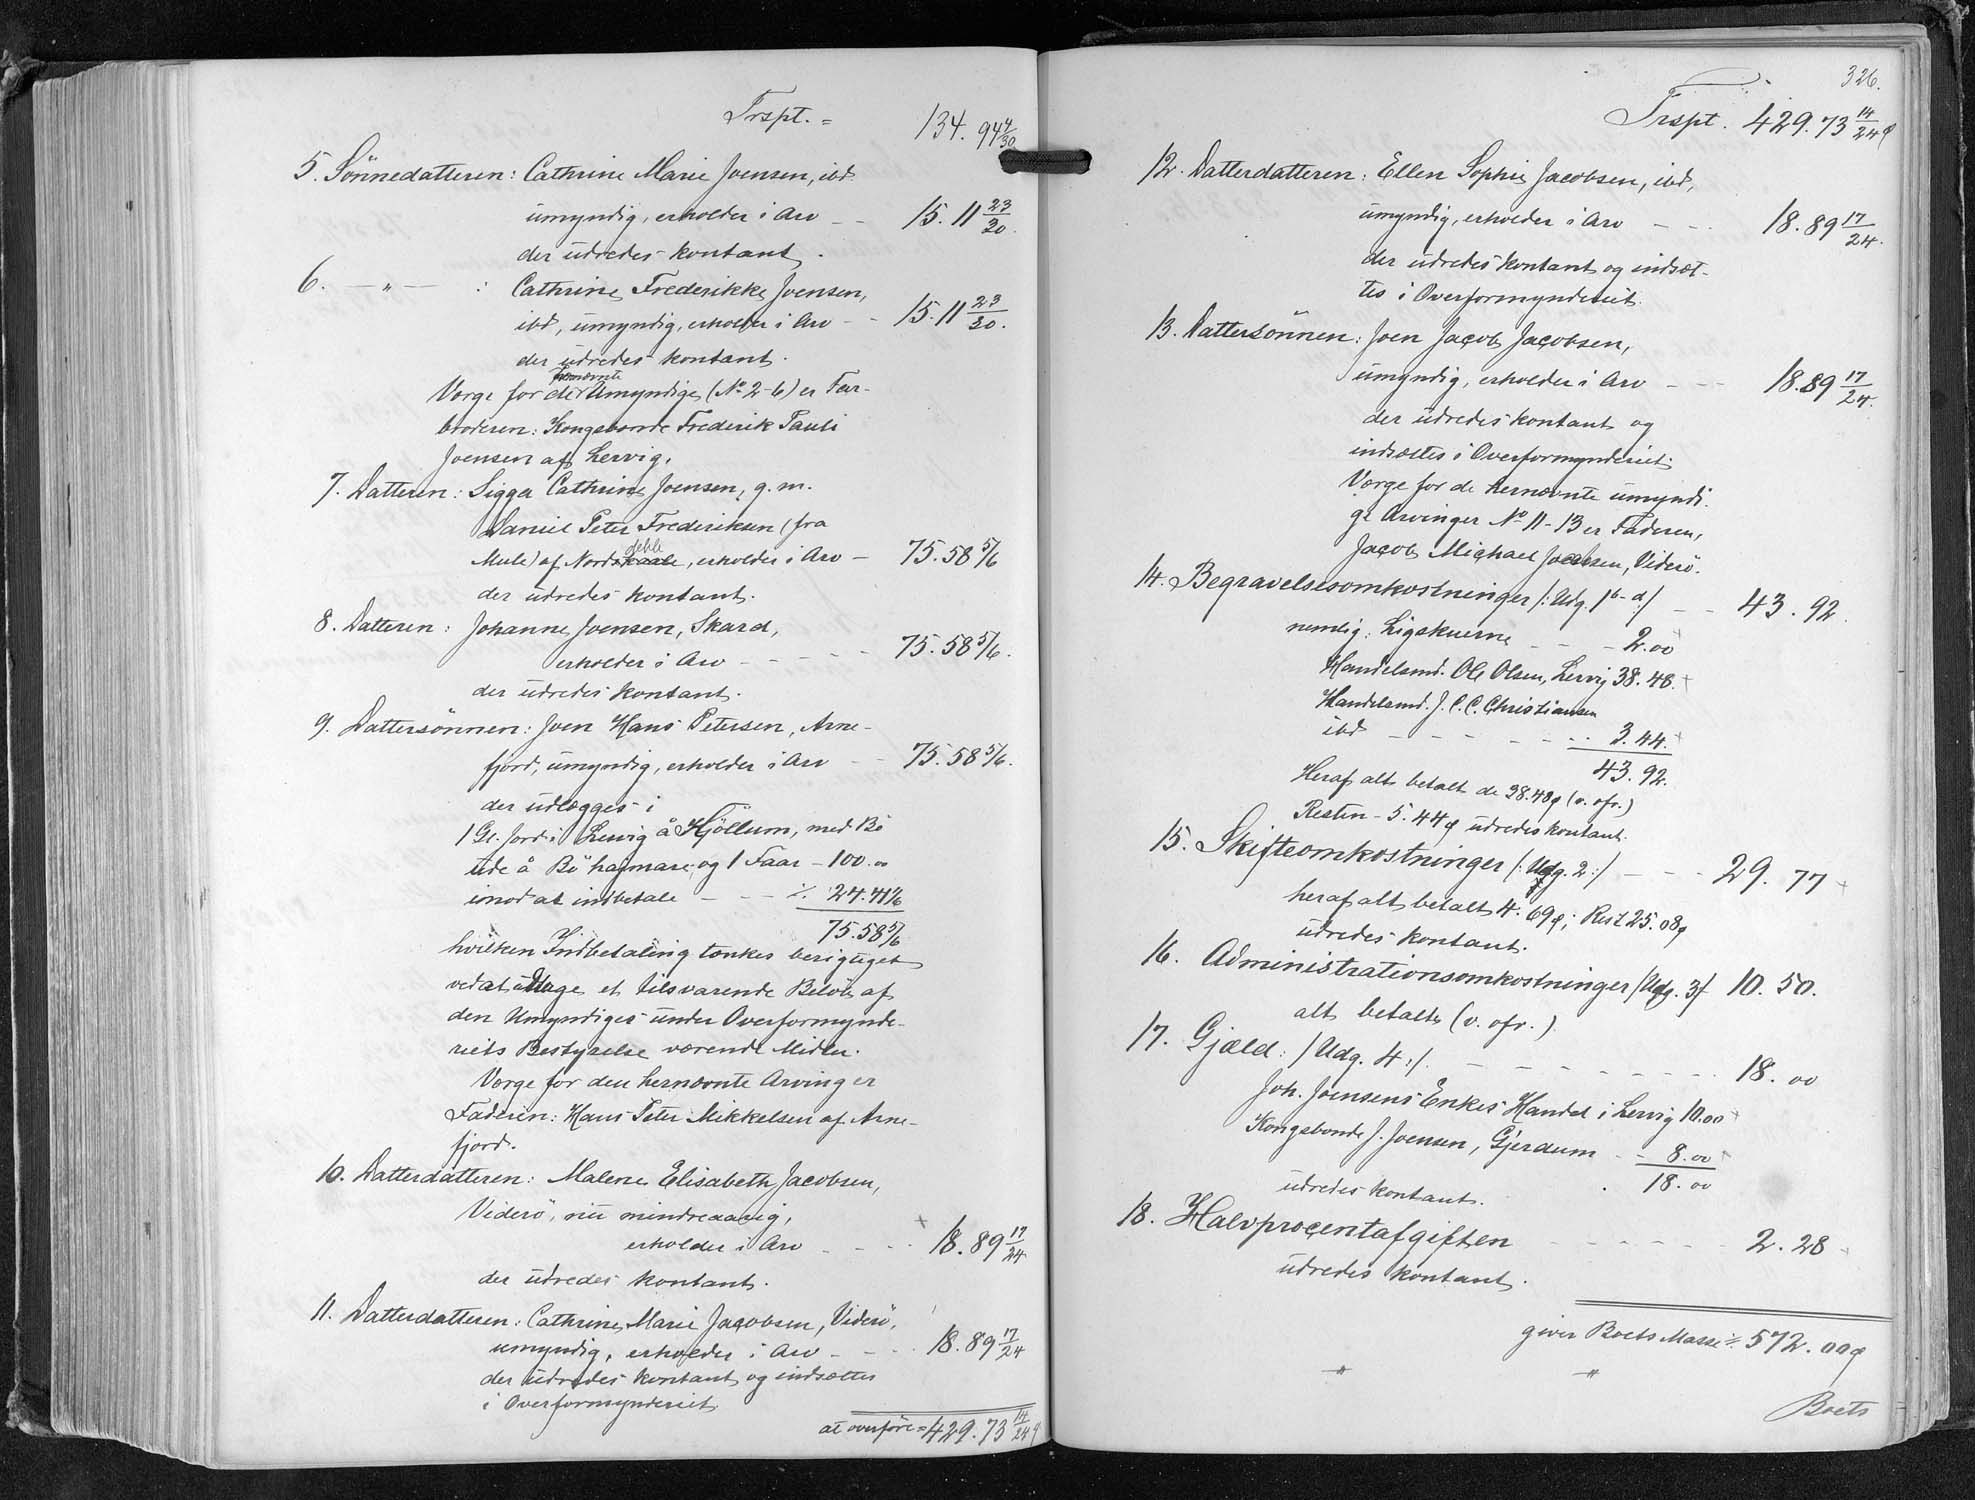 Trspt. = 134. 94 4/30
5. Sønnedatteren: Cathrine Marie Joensen, ibd
umyndig, erholder i Arv – – 15. 11 23/30.
der udredes kontant.
6. – „ – : Cathrine Frederikke Joensen,
ibd, umyndig, erholder i Arv – – 15. 11 23/30.
der udredes kontant.
hernævnte
Værge for de Umyndige (No 2-6) er Far-
broderen: Kongsbonde Frederik Pauli
Joensen af Lervig.
7. Datteren: Sigga Cathrine Joensen, g. m.
Daniel Peter Frederiksen (fra
Mule) af Nordskaale, erholder i Arv – 75. 58 5/6
der udredes kontant.
8. Datteren: Johanne Joensen, Skard,
erholder i Arv – – – – – 75. 58 5/6.
der udredes kontant.
9. Dattersønnen: Joen Hans Petersen, Arne-
fjord, umyndig, erholder i Arv – – 75. 58 5/6.
der udlægges i
1 Gl. Jord i Lervig å Hjøllum, med Bø
ude å Bø hagmare og 1 Faar – 100. 00
imod at indbetale – – – ./. 24. 41 1/6
75. 58 5/6
hvilken Indbetaling tænkes berigtiget
ved at udtage et tilsvarende Beløb af
den Umyndiges under Overformynde-
riets Bestyrelse værende Midler.
Værge for den hernævnte Arving er
Faderen: Hans Peter Mikkelsen af Arne-
fjord.
10. Datterdatteren: Malene Elisabeth Jacobsen,
Viderø, nu mindreaarig,
erholder i Arv – – – 18. 89 17/24
der udredes kontant.
11. Datterdatteren: Cathrine Marie Jacobsen, Viderø,
umyndig, erholder i Arv – – – 18. 89 17/24
der udredes kontant og indsættes
i Overformynderiet
at overføre = 429. 73 14/24
326.
Trspt. 429. 73 14/24
12. Datterdatteren: Ellen Sophie Jacobsen, ibd,
umyndig, erholder i Arv – – – 18. 89 17/24.
der udredes kontant og indsæt-
tes i Overformynderiet.
13. Dattersønnen: Joen Jacob Jacobsen,
umyndig, erholder i Arv – – – 18. 89 17/24.
der udredes kontant og
indsættes i Overformynderiet.
Værge for de hernævnte umyndi-
ge Arvinger No 11-13 er Faderen,
Jacob Michael Jocobsen, Viderø.
14. Begravelsesomkostninger /: Udg. 1 b-d :/ – – 43. 92
nemlig: Ligskuerne – – – 2. 00
Handelsmd. Ole Olsen, Lervig 38. 48.
Handelsmd. J. C. C. Christiansen
ibd – – – – – – 3. 44.
43. 92.
Heraf alt betalt de 38. 48 (v. ofr.)
Resten – 5. 44 udredes kontant.
15. Skifteomkostninger /: Udg. 2 :/ – – – 29. 77
heraf alt betalt 4. 69; Rest 25. 08
udredes kontant.
16. Administrationsomkostninger /Udg. 3/ 10. 50.
alt betalt (v. ofr.)
17. Gjæld: / Udg. 4 :/ – – – – – 18. 00
Joh. Joensens Enkes Handel i Lervig 10. 00
Kongsbonde J. Joensen, Gjerdum – – 8. 00
18. 00
udredes kontant.
18. Halvprocentafgiften – – – – – 2. 28
udredes kontant.
giver Boets Masse = 572. 00
„ „
Boets